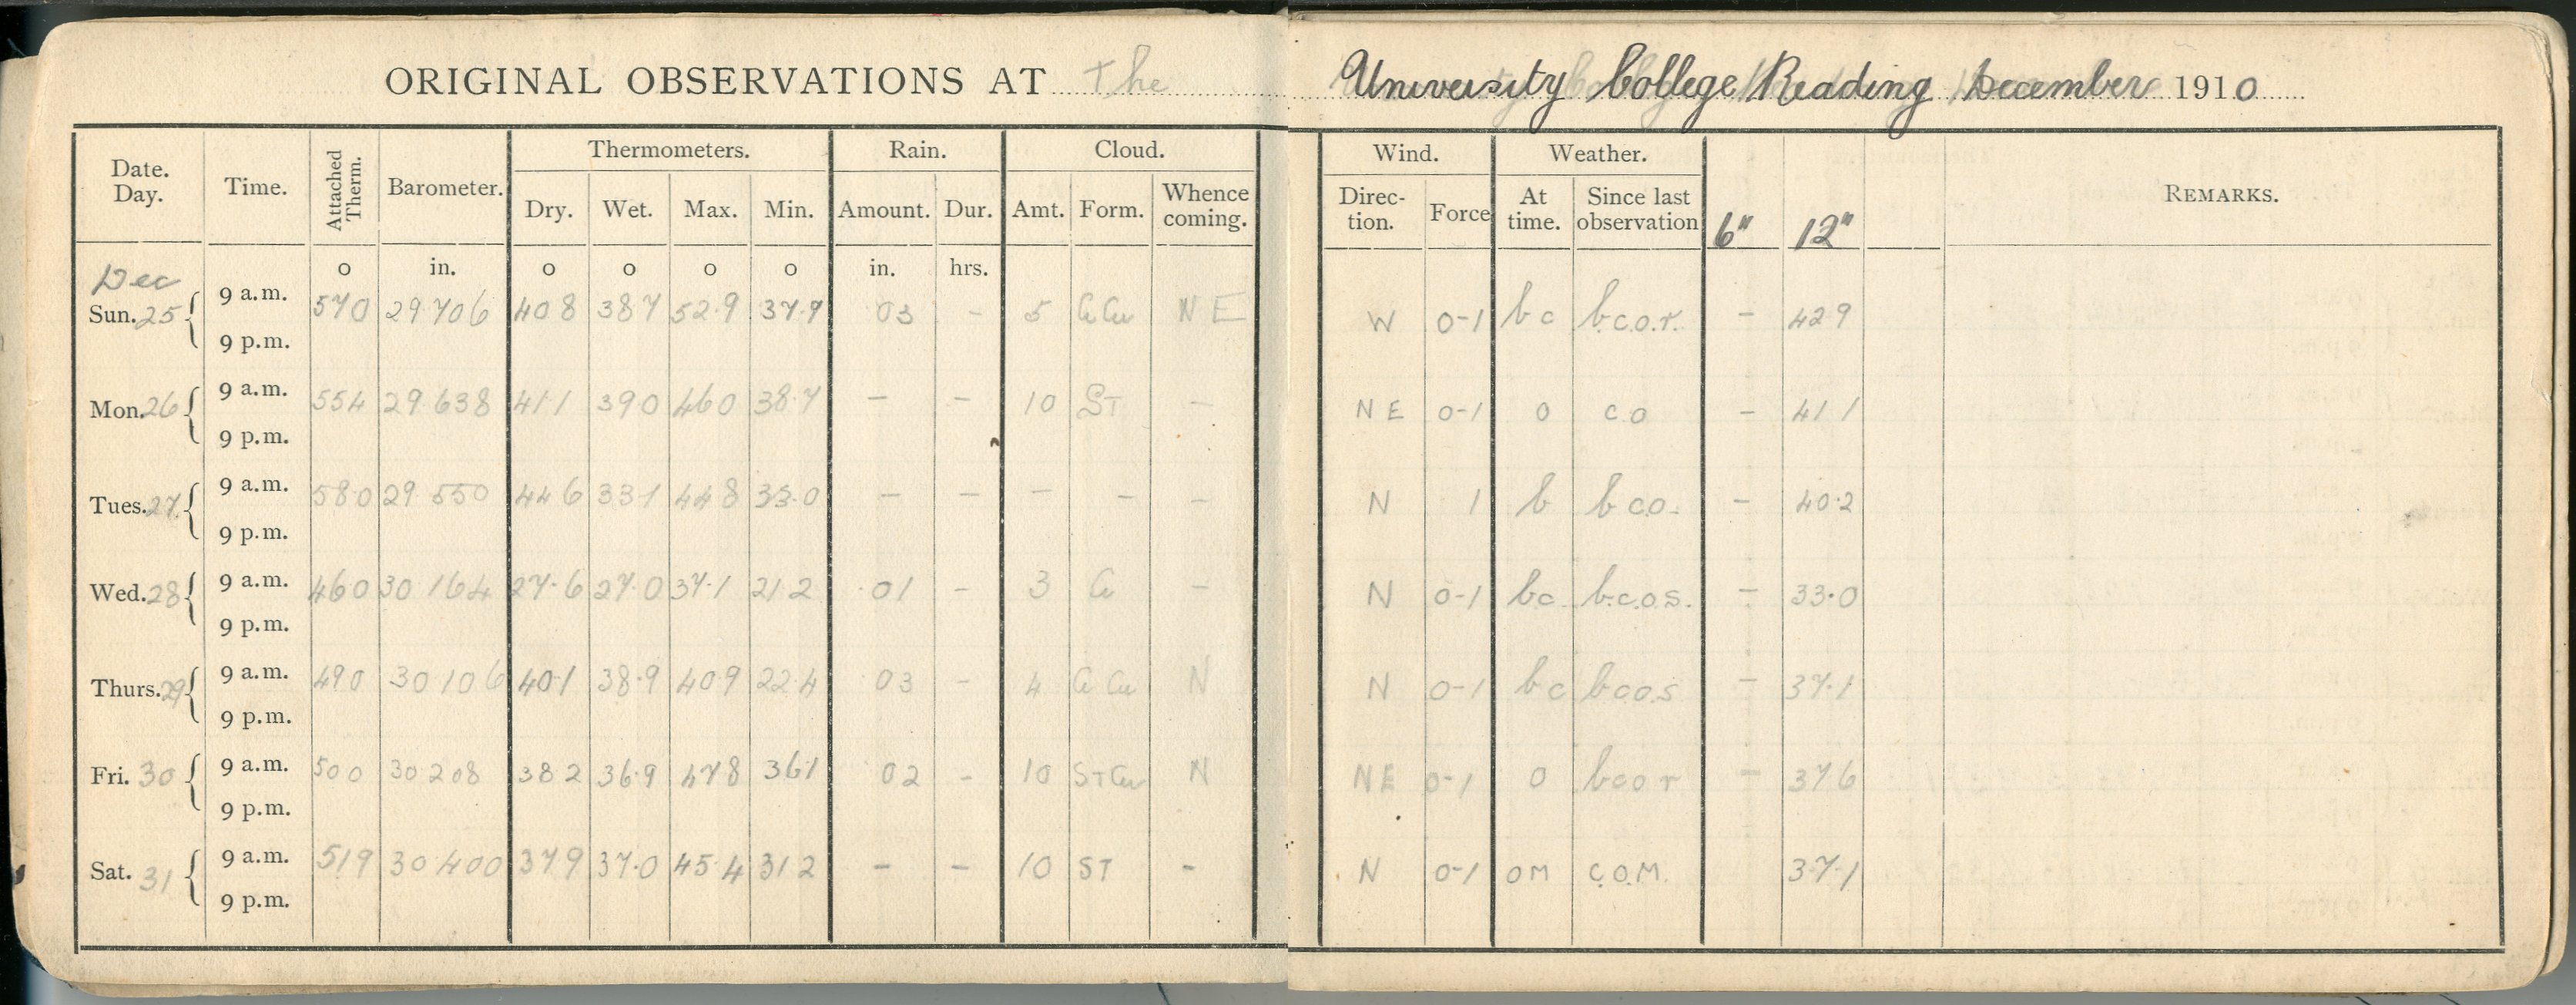 ORIGINAL OBSERVATIONS AT The University College Reading December 1910
Date. Day. Time. Attached Therm. Barometer. Thermometers. Rain. Cloud. Wind. Weather. REMARKS.
Dry. Wet. Max. Min. Amount. Dur. Amt. Form. Whence coming. Direc- tion. Force At time. Since last observation 6" 12"
o in. o o o o in. hrs.
Dec
Sun. 25 9 a.m. 57 0 29 706 40 8 38 7 52.9 37.9 03 - 5 Ci Cu N E W 0-1 b c b.c.o.r. - 42 9
9 p.m.
Mon. 26 9 a.m. 55 4 29 638 41 1 39 0 46 0 38.7 - - 10 ST - N E 0-1 o c.o - 41 1
9 p.m.
Tues. 27 9 a.m. 58 0 29 550 44 6 33 1 44 8 33.0 - - - - - N 1 b b c.o. - 40.2
9 p.m.
Wed. 28 9 a.m. 46 0 30 164 27.6 27.0 37.1 21.2 .01 - 3 Ci - N 0-1 b.c. b.c.o.s. - 33.0
9 p.m.
Thurs. 29 9 a.m. 49 0 30 106 40 1 38.9 40 9 22.4 03 - 4 Ci Cu N N 0-1 b c b c o s - 37.1
9 p.m.
Fri. 30 9 a.m. 50 0 30 208 38 2 36.9 47 8 36 1 02 - 10 ST Cu N N E 0-1 o b c o r - 37 6
9 p.m.
Sat. 31 9 a.m. 51 9 30 400 37 9 37.0 45 4 31 2 - - 10 ST - N 0-1 O M C.O.M. 37.1
9 p.m.